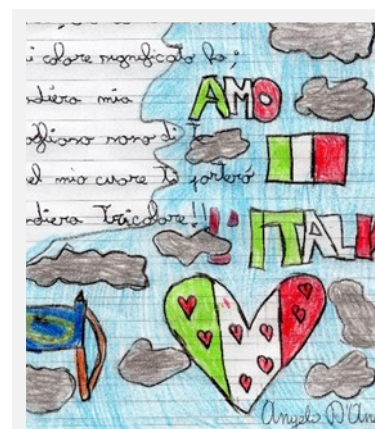 i colore significato ha;
ndiera mia AMO
ogliono nono di te
el mio cuore ti porterò
ndiera tricolore!!
L'ITALI
Angelo D'An